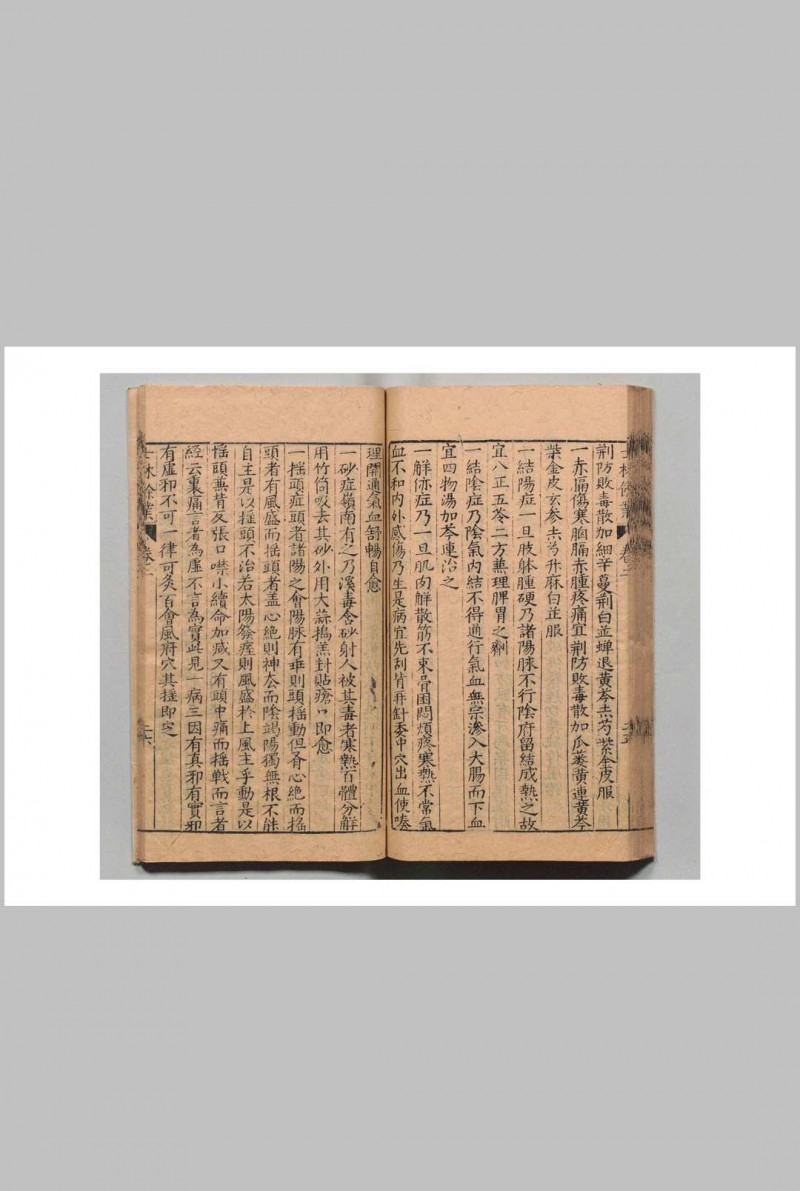 荆防敗毒散加細辛蔓荆白芷蟬退黃芩赤芍紫金皮服
一赤膈傷寒胸膈赤腫疼痛宜荆防敗毒散加瓜蔞黃連黃芩
紫金皮玄參赤芍升麻白芷服
一結陽症一旦肢躰腫硬乃諸陽脉不行陰府留結成熱之故
宜八正五苓二方蒸理脾胃之劑
一結陰症乃陰氣內結不得通行氣血無宗滲入大腸而下血
宜四物湯加芩連治之
一解㑊症乃一旦肌肉解散筋不束骨困悶煩疼寒熱不常氣
血不和內外感傷乃生是病宜先刮背并針委中穴出血使腠
理開通氣血舒暢自愈
一砂症嶺南有之乃溪毒含砂射人被其毒者寒熱百體分解
用竹筒吸去其砂外用大蒜搗羔封貼瘡口即愈
一搖頭症頭者諸陽之會陽脉有乖則頭搖動但有心絕而搖
頭者有風盛而搖頭者盖心絕則神去而陰竭陽獨無根不能
自主是以搖頭不治若太陽發痓則風盛於上風主乎動是以
搖頭無背反張口噤小續命加减又有頭中痛而搖戰而言者
經云裏痛言者為虛不言為實此見一病三因有真邪有實邪
有虛邪不可一律可灸百會風府穴其搖即定
士林餘業
卷二
士林餘業
卷二